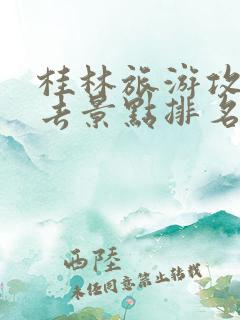 桂林旅游攻
去景點排名
西陸
未经同意禁止转载